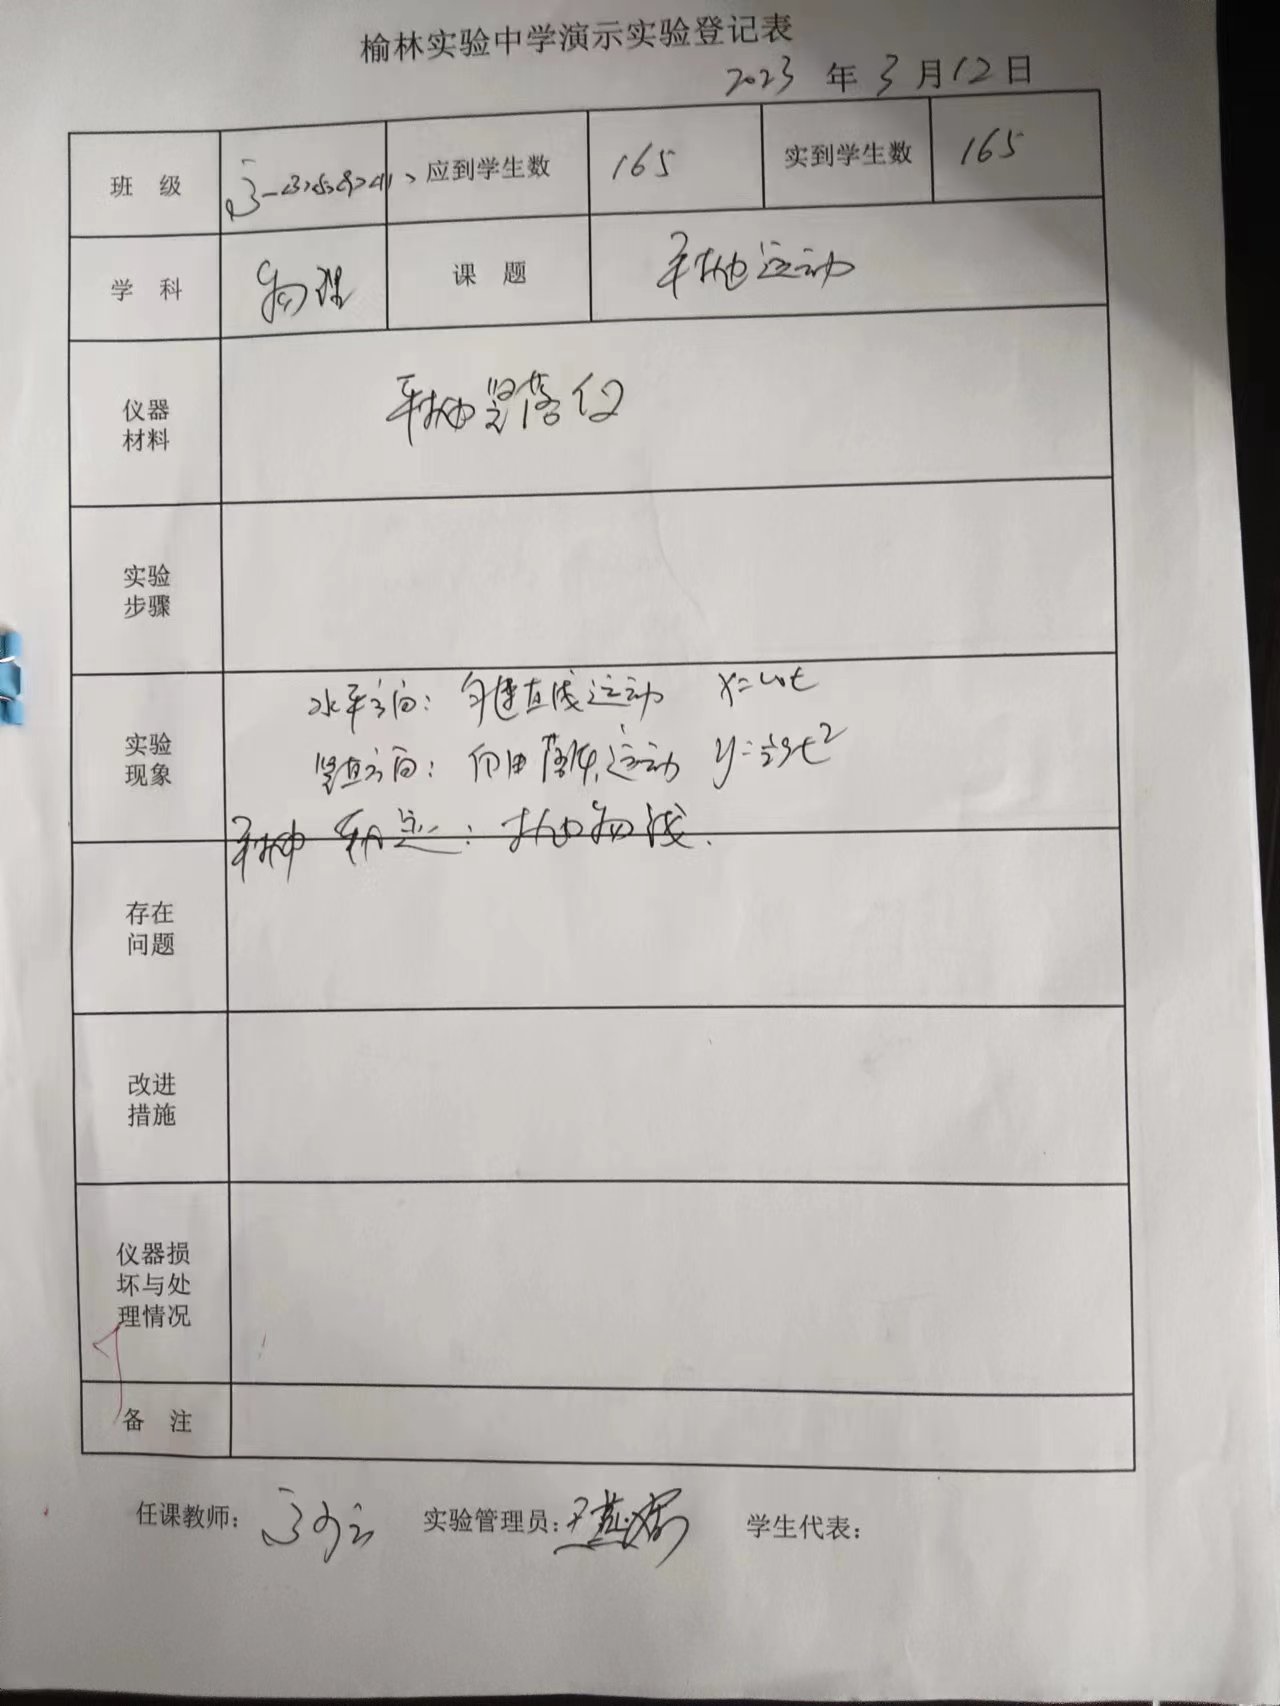 榆林实验中学演示实验登记表
2023 年 3 月 12 日
班 级 高一 应到学生数 165 实到学生数 165
学 科 物理 课 题 平抛运动
仪器
材料
平抛竖落仪
实验
步骤
实验
现象
水平方向: 匀速直线运动 x=v₀t
竖直方向: 自由落体运动 y=½gt²
平抛 轨迹: 抛物线.
存在
问题
改进
措施
仪器损
坏与处
理情况
备 注
任课教师: 实验管理员: 学生代表: